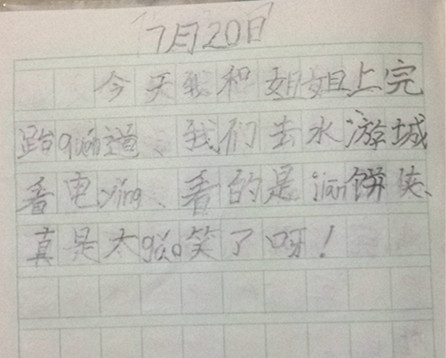 7月20日
今天我和姐姐上完
跆quán道、我们去水游城
看电yǐng、看的是jiān饼侠、
真是太gǎo笑了呀！